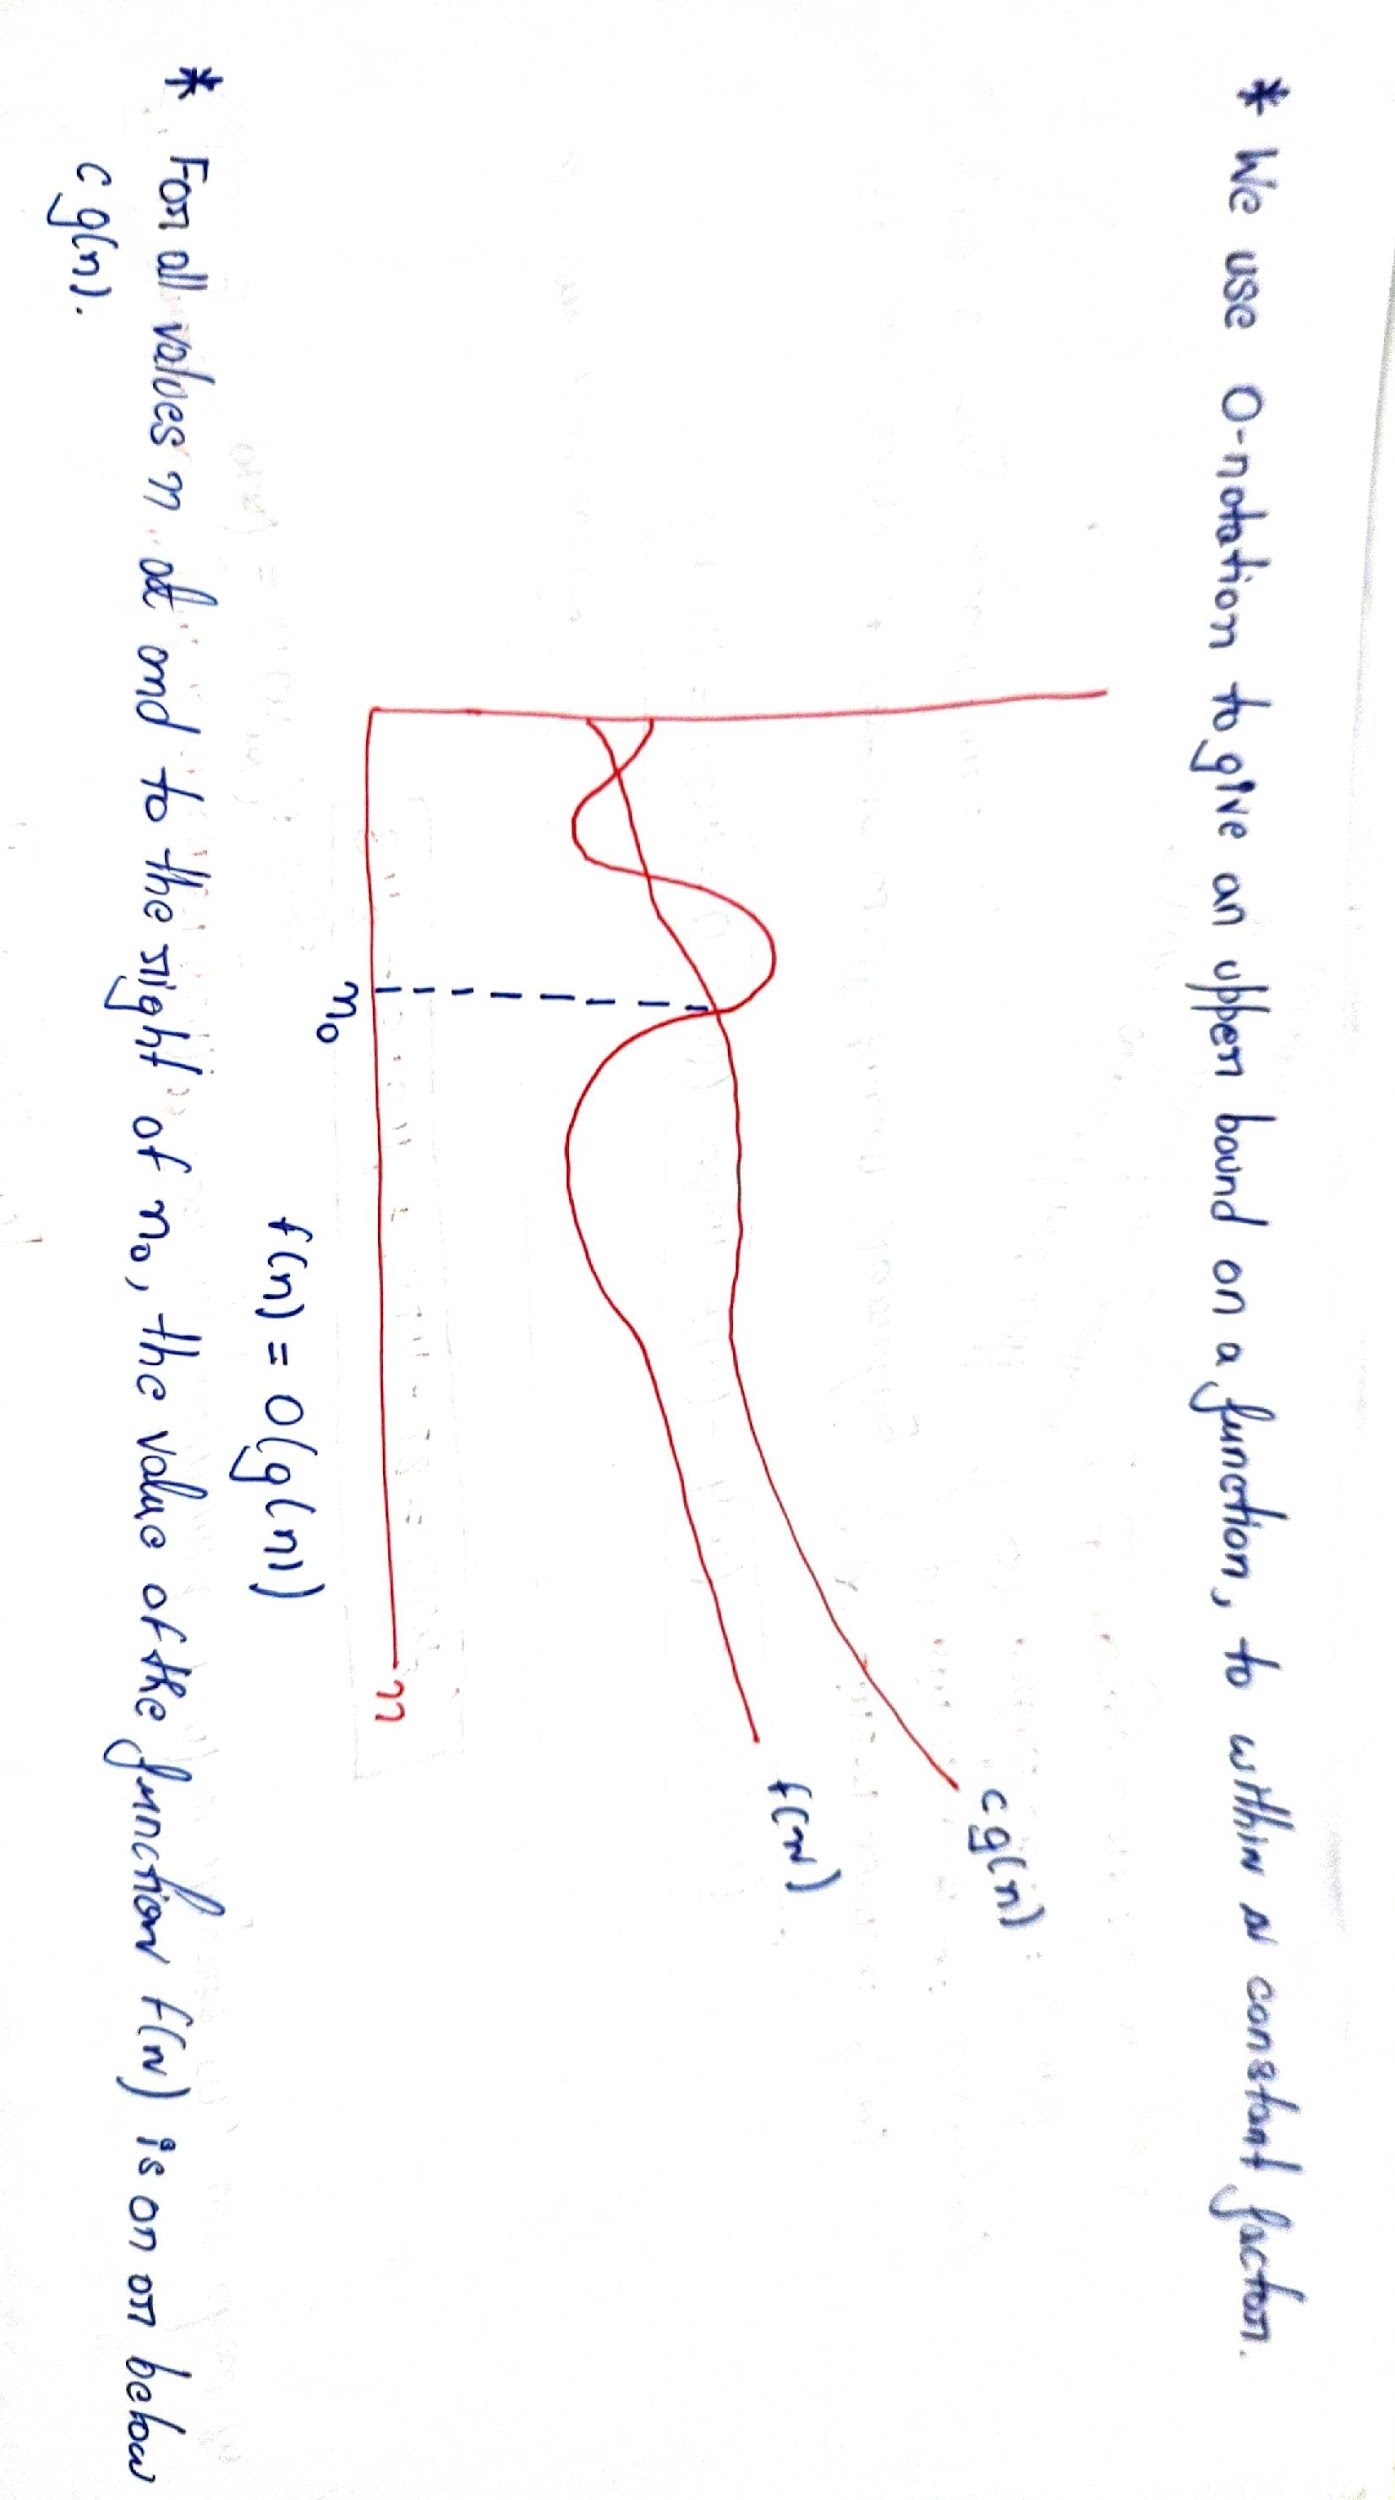 * We use O-notation to give an upper bound on a function, to within a constant factor.
c g(n)
f(n)
n
n₀
f(n) = O(g(n))
* For all values n at and to the right of n₀, the value of the function f(n) is on or below
c g(n).